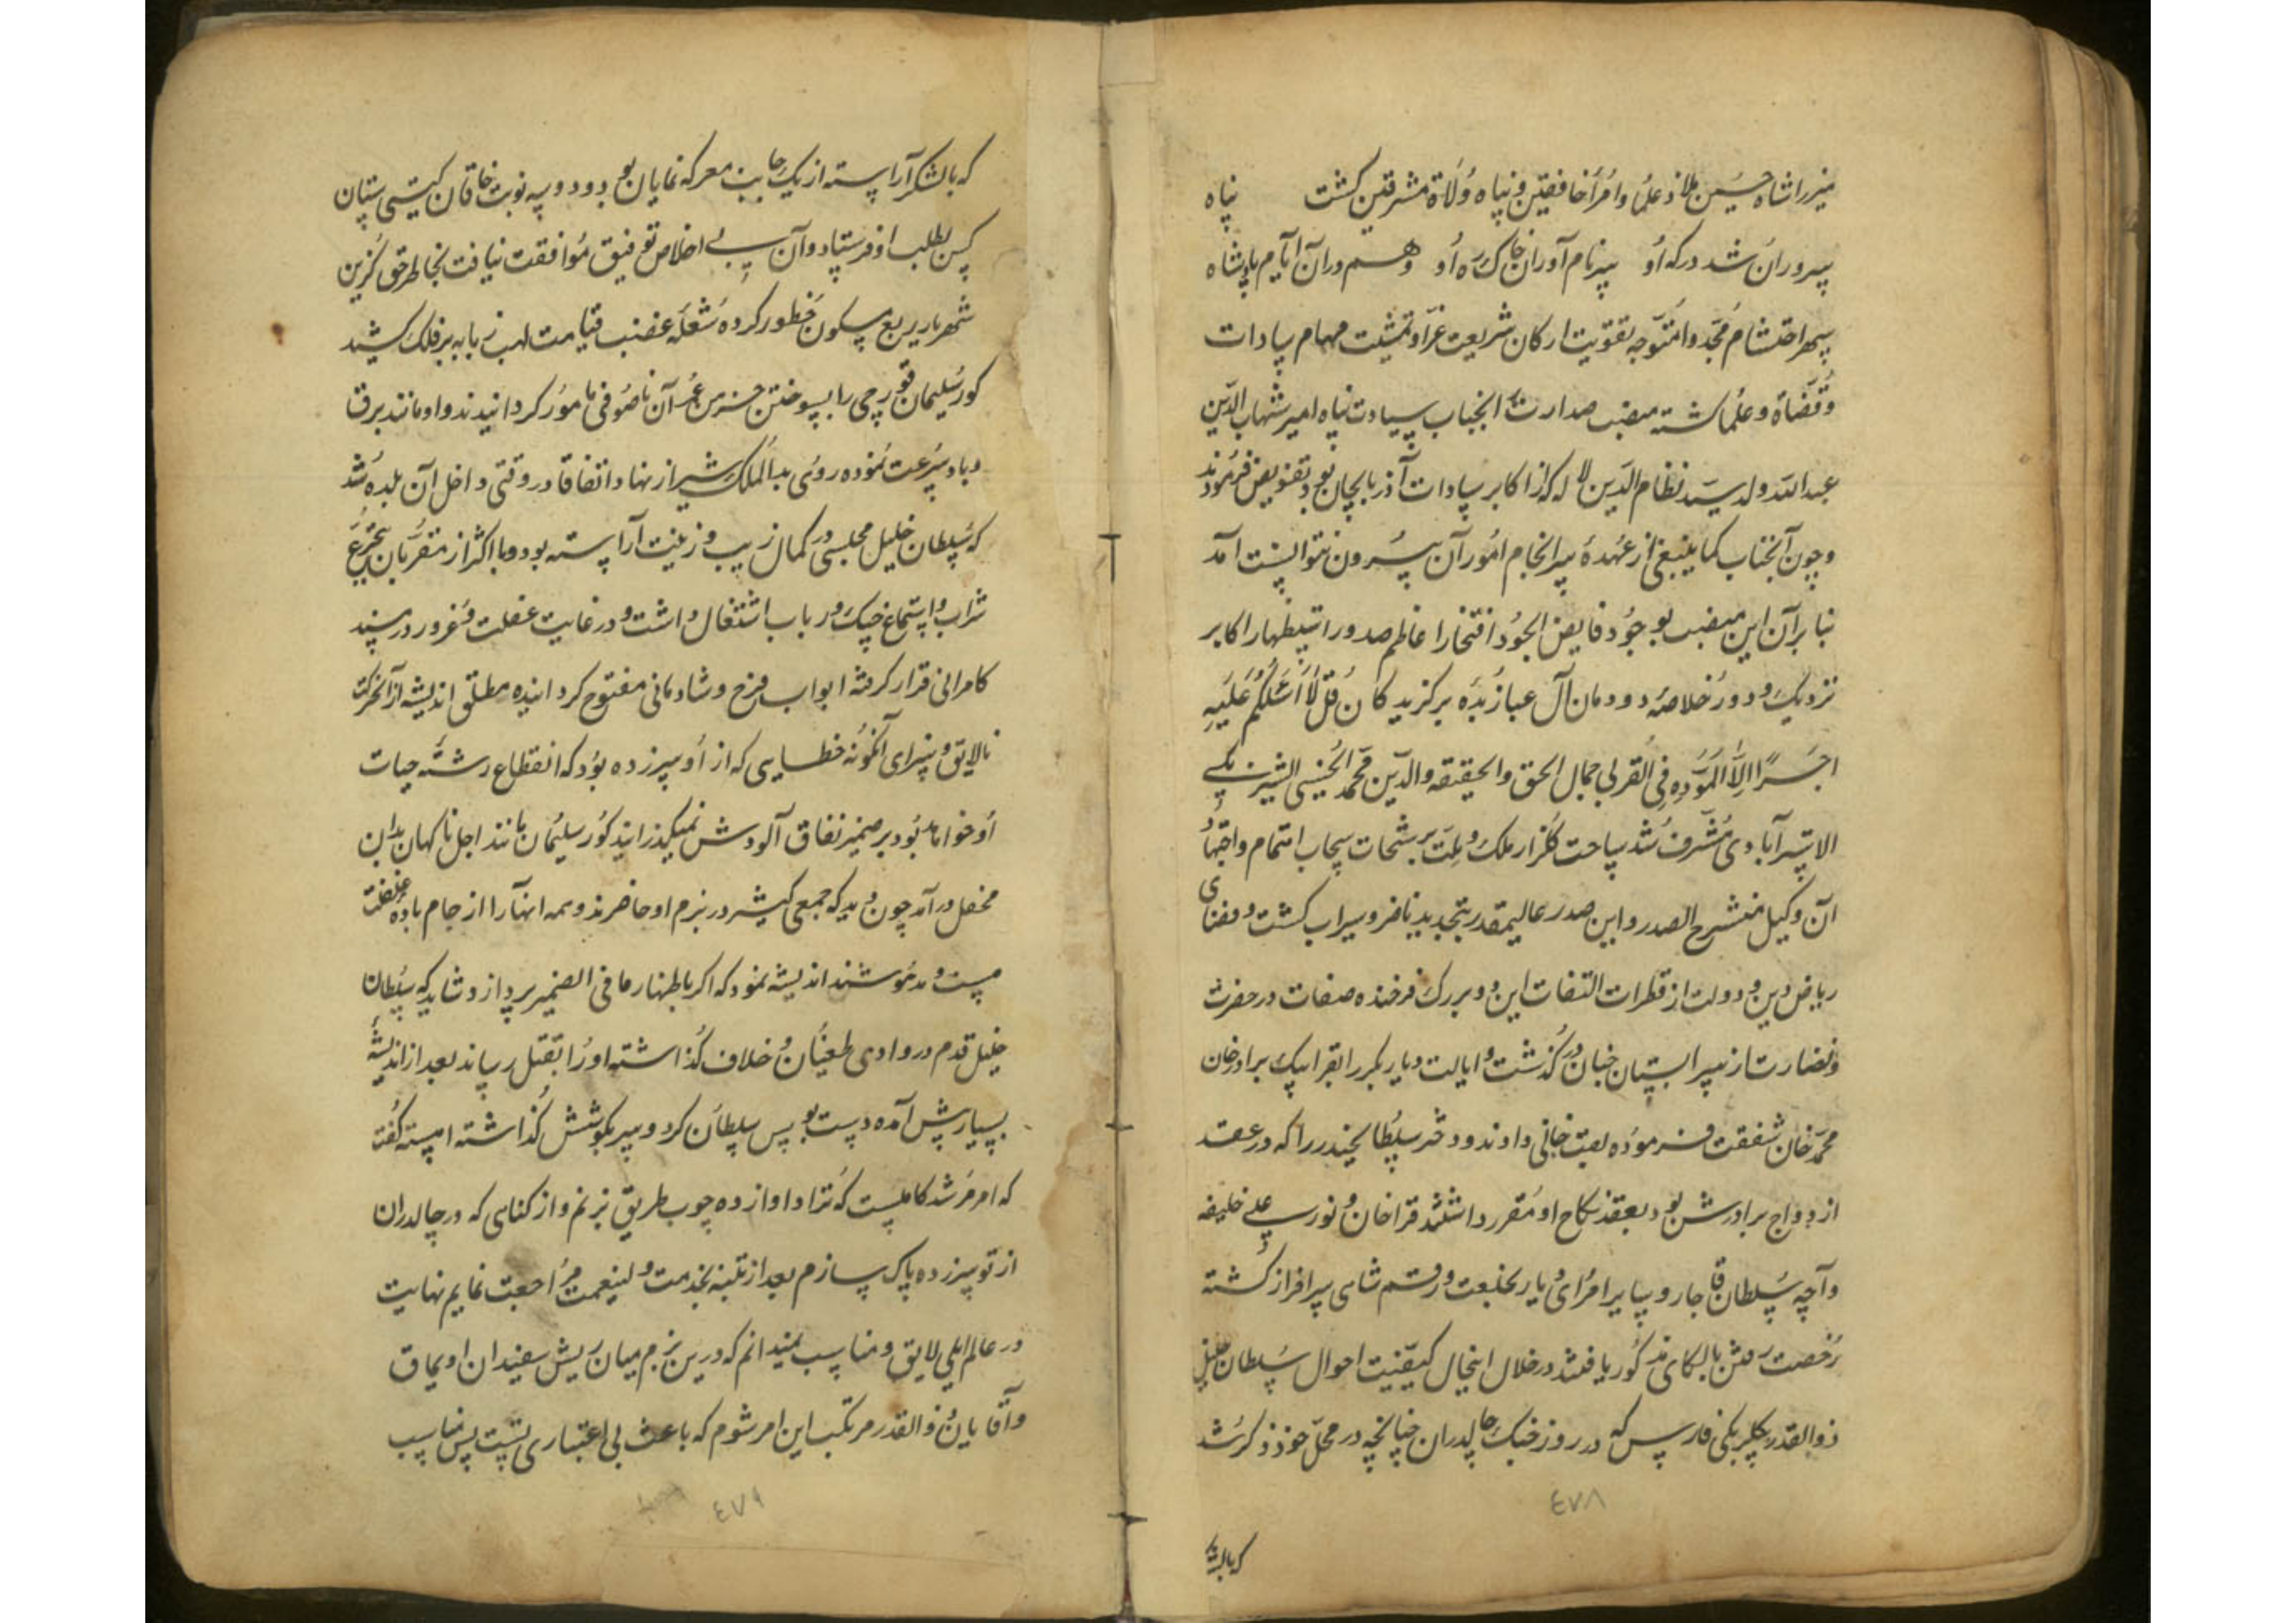 میرزا شاه حسین ملاذ علما و امرا خافقین و پناه ولاة مشرقین کشت پناه
سروران شد درکه او سر نام آوران خاک ره او و هم در آن ایام پادشاه
سپهر احتشام مجددا متوجه تقویت ارکان شریعت غرا و تمشیت مهام سادات
و قضاة و علما کشته منصب صدارت انجناب سیادت پناه امیر شهاب الدین
عبد الله ولد سید نظام الدین لاله که از اکابر سادات آذربایجان بود تفویض فرمودند
و چون آنجناب کما ینبغی از عهدهٔ سرانجام امور آن بیرون نتوانست آمد
بنا برآن این منصب بوجود فایض الجود افتخار اعاظم صدور استظهار اکابر
نزدیک و دور خلاصهٔ دودمان آل عبا زبده برکزیدکان قل لا اسئلکم علیه
اجرا الا المودة فی القربی جمال الحق والحقیقه والدین محمد الحسینی
الاسترآبادی مشرف شد ساحت کلزار ملک و ملت برشحات سحاب اهتمام و اجتهاد
آن وکیل منشرح الصدر و این صدر عالیمقدر بتجدید ناضر و سیراب کشت و فضای
ریاض دین و دولت از قطرات التفات این دو بزرک فرخنده صفات در خضرت
و نضارت از سرابستان جنان در کذشت و ایالت دیاربکر را بقرابیک برادر خان
محمد خان شفقت فرموده لقب خانی دادند و دختر سلطان حیدر را که در عقد
ازدواج برادرش بود بعقد نکاح او مقرر داشتند قراخان و نور علی خلیفه
و آچه سلطان قاجار و سایر امرای دیار بخلعت و رقم شاهی سرافراز کشته
رخصت رفتن بالکای مذکور یافتند در خلال اینحال کیفیت احوال سلطان خلیل
ذوالقدر بکلربکی فارس که در روز جنک چالدران چنانچه در محل خود ذکر شد
٤٧٨
که بالشکر
که بالشکر آراسته از یک جانب معرکه نمایان بود و دو سه نوبت خاقان کیتی ستان
کس بطلب او فرستاد و آن بی اخلاص توفیق موافقت نیافت بخاطر حق کزین
شهریار ربع مسکون خطور کرده شعله غضب قیامت لهب زبانه بر فلک کشید
کور سلیمان قورچی را بسوختن خرمن عمر آن ناصوفی مامور کردانیدند و او مانند برق
و باد سرعت نموده روی بدار الملک شیراز نهاد و اتفاقا در وقتی داخل آن بلده شد
که سلطان خلیل مجلسی در کمال زیب و زینت آراسته بود و با اکثر از مقربان بتجرع
شراب و استماع چنک و رباب اشتغال داشت و در غایت غفلت و غرور در مسند
کامرانی قرار کرفته ابواب فرح و شادمانی مفتوح کردانیده مطلق اندیشه از آن حرکت
نالایق و سزای آنکونه خطایی که از او سرزده بود که انقطاع رشته حیات
او خواهد بود بر ضمیر نفاق آلودش نمیکذرانید کور سلیمان مانند اجل ناکهان بدان
محفل در آمد چون دید که جمعی کثیر در بزم او حاضرند و همه آنها را از جام باده غفلت
مست و مدهوشند اندیشه نمود که اکر باظهار ما فی الضمیر پردازد شاید که سلطان
خلیل قدم در وادی طغیان و خلاف کذاشته او را بقتل رساند بعد از اندیشه
بسیار پیش آمده دست بوس سلطان کرد و سر بکوشش کذاشته آهسته کفت
که امر مرشد کاملست که ترا دوازده چوب طریق بزنم و از کناهی که در چالدران
از تو سرزده پاک سازم بعد از تنبیه بخدمت ولینعمت مراجعت نمایم نهایت
در عالم ایلی لایق و مناسب نمیدانم که درین بزم میان ریش سفیدان اویماق
و آقایان ذوالقدر مرتکب این امر شوم که باعث بی اعتباری تست پس مناسب
٤٧٩